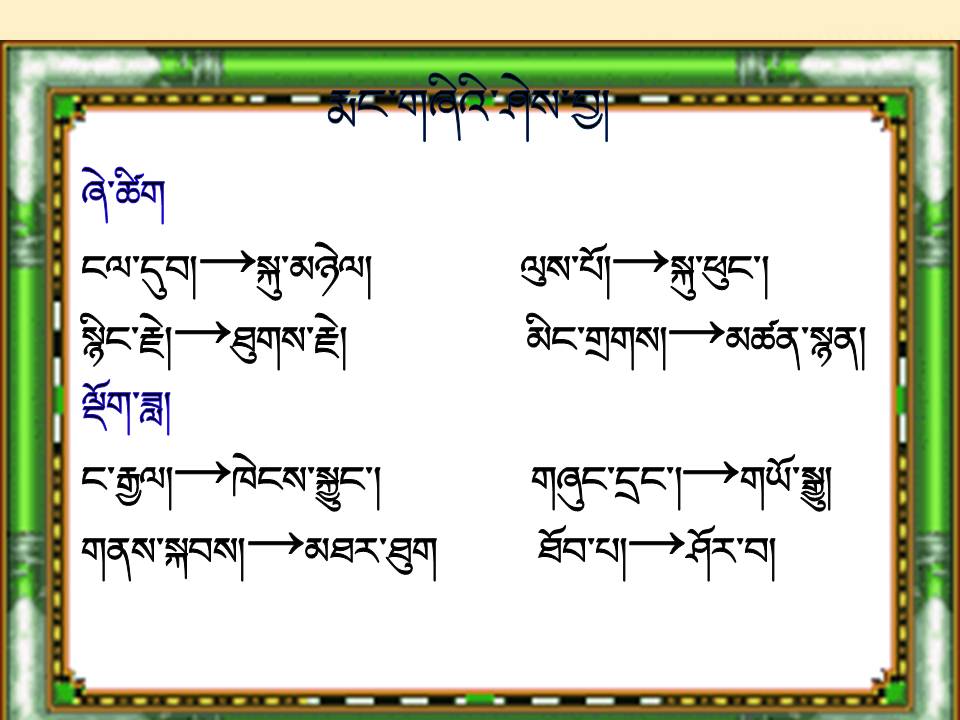 རྨང་གཞིའི་ཤེས་བྱ།
ཞེ་ཚིག
ངལ་དུབ།→སྐུ་མཉེལ། ལུས་པོ།→སྐུ་ཕུང་།
སྙིང་རྗེ།→ཐུགས་རྗེ། མིང་གྲགས།→མཚན་སྙན།
ལྡོག་ཟླ།
ང་རྒྱལ།→ཁེངས་སྐྱུང་། གཞུང་དྲང་།→གཡོ་སྒྱུ།
གནས་སྐབས།→མཐར་ཐུག ཐོབ་པ།→ཤོར་བ།